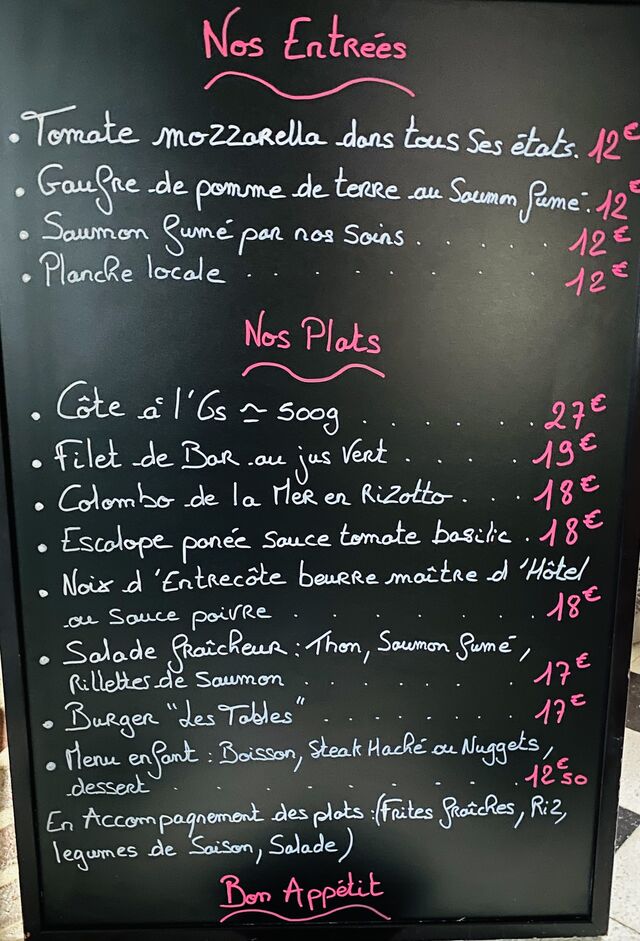 Nos Entrées
• Tomate mozzarella dans tous ses états. 12€
• Gaufre de pomme de terre au Saumon fumé. 12€
• Saumon fumé par nos soins . . . . . 12€
• Planche locale . . . . . . . . 12€
Nos Plats
• Côte à l'Os ≃ 500g . . . . . . 27€
• Filet de Bar au jus Vert . . . . . 19€
• Colombo de la Mer en Rizotto . . . 18€
• Escalope panée sauce tomate basilic . 18€
• Noix d'Entrecôte beurre maître d'Hôtel
ou sauce poivre . . . . . . . 18€
• Salade fraîcheur : Thon, Saumon fumé,
Rillettes de saumon . . . . . . 17€
• Burger "Les Tables" . . . . . . . 17€
• Menu enfant : Boisson, Steak Haché ou Nuggets,
dessert . . . . . . . . . . 12€50
En Accompagnement des plats : (Frites fraîches, Riz,
legumes de Saison, Salade)
Bon Appétit